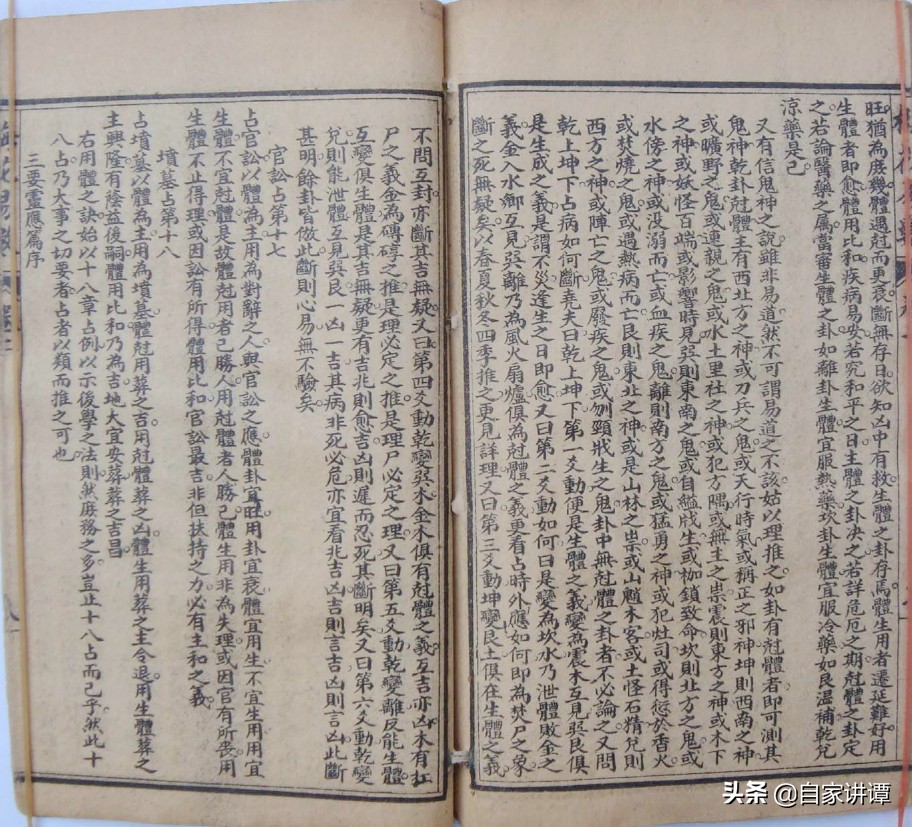 旺猶為庶幾體遇尅而更衰斷無存日欲知凶中有救生體之卦存焉體生用者遷延難好用
生體者即愈體用比和疾病易安若究和平之日主體之卦决之若詳危厄之期尅體之卦定
之若論醫藥之属當審生體之卦如離卦生體宜服熱藥坎卦生體宜服冷藥如艮温補乾兌
凉藥是已
又有信鬼神之說雖非易道然不可謂易道之不該姑以理推之如卦有尅體者即可測其
鬼神乾卦尅體主有西北方之神或刀兵之鬼或天行時氣或稱正之邪神坤則西南之神
或曠野之鬼或連親之鬼或水土里社之神或犯方隅或無主之祟震則東方之神或木下
之神或妖怪百端或影響時見巽則東南之鬼或自縊戕生或枷鎖致命坎則北方之鬼或
水傍之神或没溺而亡或血疾之鬼離則南方之鬼或猛勇之神或犯灶司或得愆於香火
或焚燒之鬼或遇熱病而亡艮則東北之神或是山林之祟或山魈木客或土怪石精兌則
西方之神或陣亡之鬼或廢疾之鬼或刎頸戕生之鬼卦中無尅體之卦者不必論之又問
乾上坤下占病如何斷堯夫曰乾上坤下第一爻動便是生體之義變為震木互見巽艮俱
是生成之義是謂不災逢生之日即愈又曰第二爻動如何曰是變為坎水乃泄體敗金之
義金入水鄉互見巽離乃為風火扇爐俱為尅體之義更看占時外應如何即為焚尸之象
斷之死無疑矣以春夏秋冬四季推之更見詳理又曰第三爻動坤變艮土俱在生體之義
不問互卦亦斷其吉無疑又曰第四爻動乾變巽木金木俱有尅體之義互吉亦凶木有扛
尸之義金為磚碍之推是理必定之推是理尸必定之理又曰第五爻動乾變離反能生體
互變俱生體是其吉無疑更有吉兆則愈吉凶則遲而忍死其斷明矣又曰第六爻動乾變
兌則能泄體互見巽艮一凶一吉其病非死必危亦宜看兆吉凶吉則言吉凶則言凶此斷
甚明餘卦皆倣此斷則心易無不驗矣
官訟占第十七
占官訟以體為主用為對辭之人與官訟之應體卦宜旺用卦宜衰體宜用生不宜生用用宜
生體不宜尅體是故體尅用者己勝人用尅體者人勝己體生用非為失理或因官有所喪用
生體不止得理或因訟有所得體用比和官訟最吉非但扶持之力必有主和之義
墳墓占第十八
占墳墓以體為主用為墳墓體尅用葬之吉用尅體葬之凶體生用葬之主令退用生體葬之
主興隆有蔭益後嗣體用比和乃為吉地大宜安葬葬之吉昌
右用體之訣始以十八章占例以示後學之法則然庶務之多豈止十八占而已乎然此十
八占乃大事之切要者占者以類而推之可也
三要靈應篇序
頭条 @自家讲谭